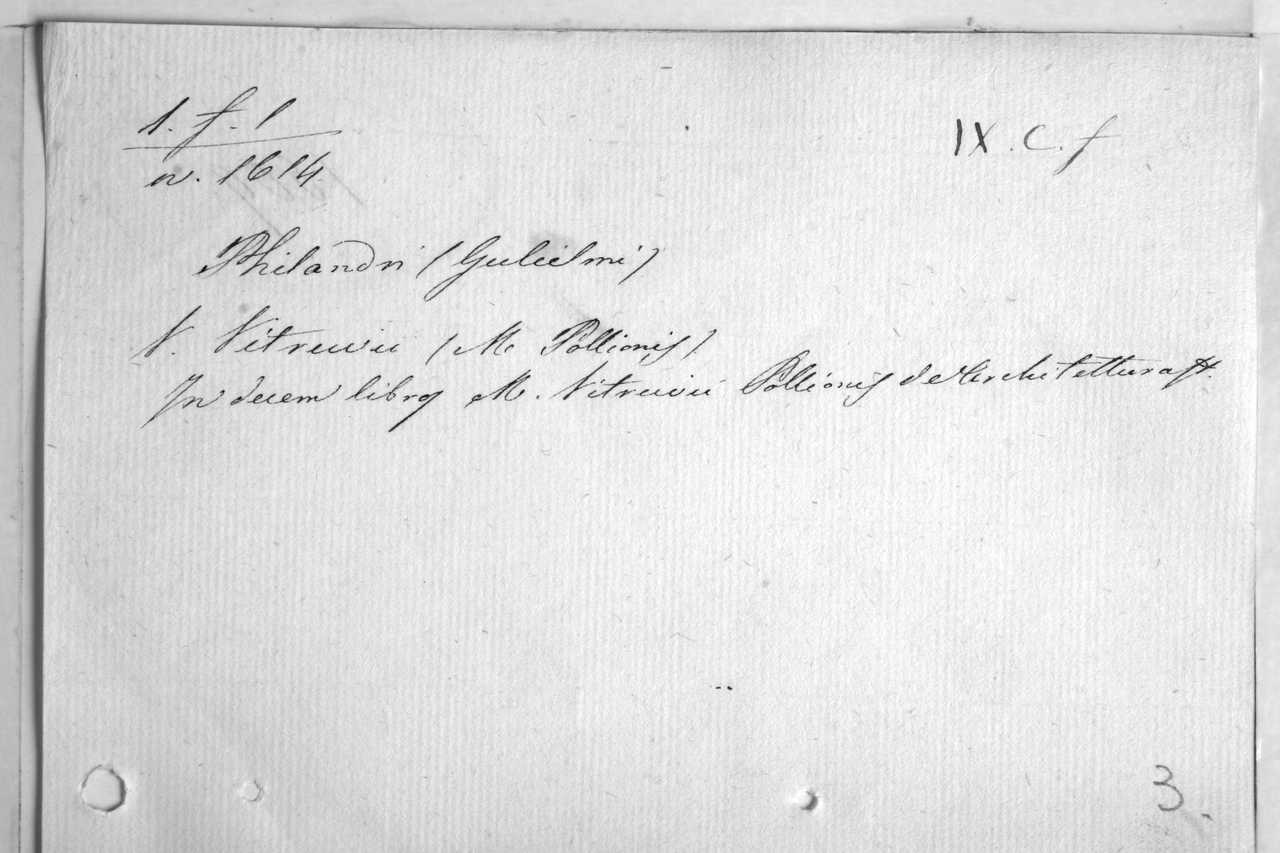 1. f. 1
n. 1614
IX. C. f
Philandri (Gulielmi)
V. Vitruvii (M. Pollionis)
In decem libros M. Vitruvii Pollionis de Architettura
3.